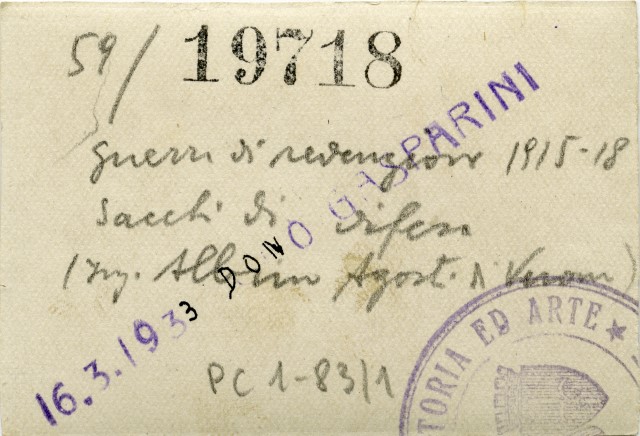 59/ 19718
guerra di redenzione 1915-18
Sacchi di difesa
(Ing. Agost. di Verona)
16.3.1933 DONO GASPARINI
PC 1-83/1
TORIA ED ARTE ★